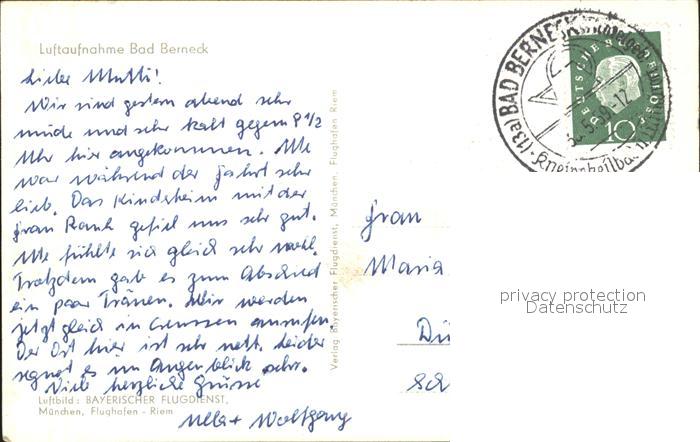 Luftaufnahme Bad Berneck
Liebe Mutti!
Wir sind gestern abend sehr
müde und sehr kalt gegen 8 1/2
Uhr hier angekommen. Ute
war während der Fahrt sehr
lieb. Das Kinderheim mit der
Frau Rank gefiel uns sehr gut.
Ute fühlte sich gleich sehr wohl.
Trotzdem gab es zum Abschied
ein paar Tränen. Wir werden
jetzt gleich in anrufen.
Der Ort hier ist sehr nett. Leider
regnet es im Augenblick sehr.
Viele herzliche Grüsse
Ulla + Wolfgang
Luftbild: BAYERISCHER FLUGDIENST,
München, Flughafen - Riem
Verlag Bayerischer Flugdienst, München, Flughafen Riem
(13a) BAD BERNECK
Kneippheilbad
DEUTSCHE BUNDESPOST
10
Frau
Maria
Dü
Sch
privacy protection
Datenschutz